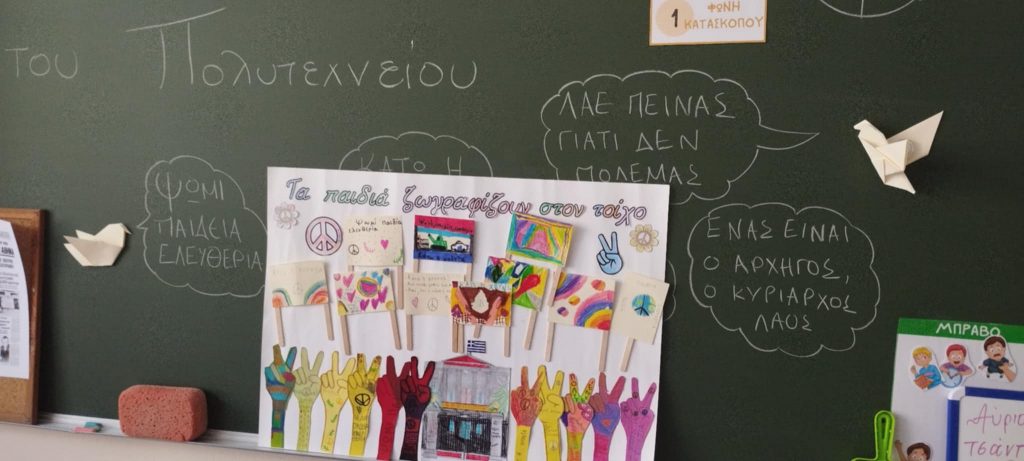 του Πολυτεχνείου
1 ΦΩΝΗ
ΚΑΤΑΣΚΟΠΟΥ
ΛΑΕ ΠΕΙΝΑΣ
ΓΙΑΤΙ ΔΕΝ
ΠΟΛΕΜΑΣ
ΚΑΤΩ Η
ΨΩΜΙ
ΠΑΙΔΕΙΑ
ΕΛΕΥΘΕΡΙΑ
Τα παιδιά ζωγραφίζουν στον τοίχο
Ψωμί παιδεία
ελευθερία
ΕΝΑΣ ΕΙΝΑΙ
Ο ΑΡΧΗΓΟΣ,
Ο ΚΥΡΙΑΡΧΟΣ
ΛΑΟΣ
ΜΠΡΑΒΟ
Αύριο